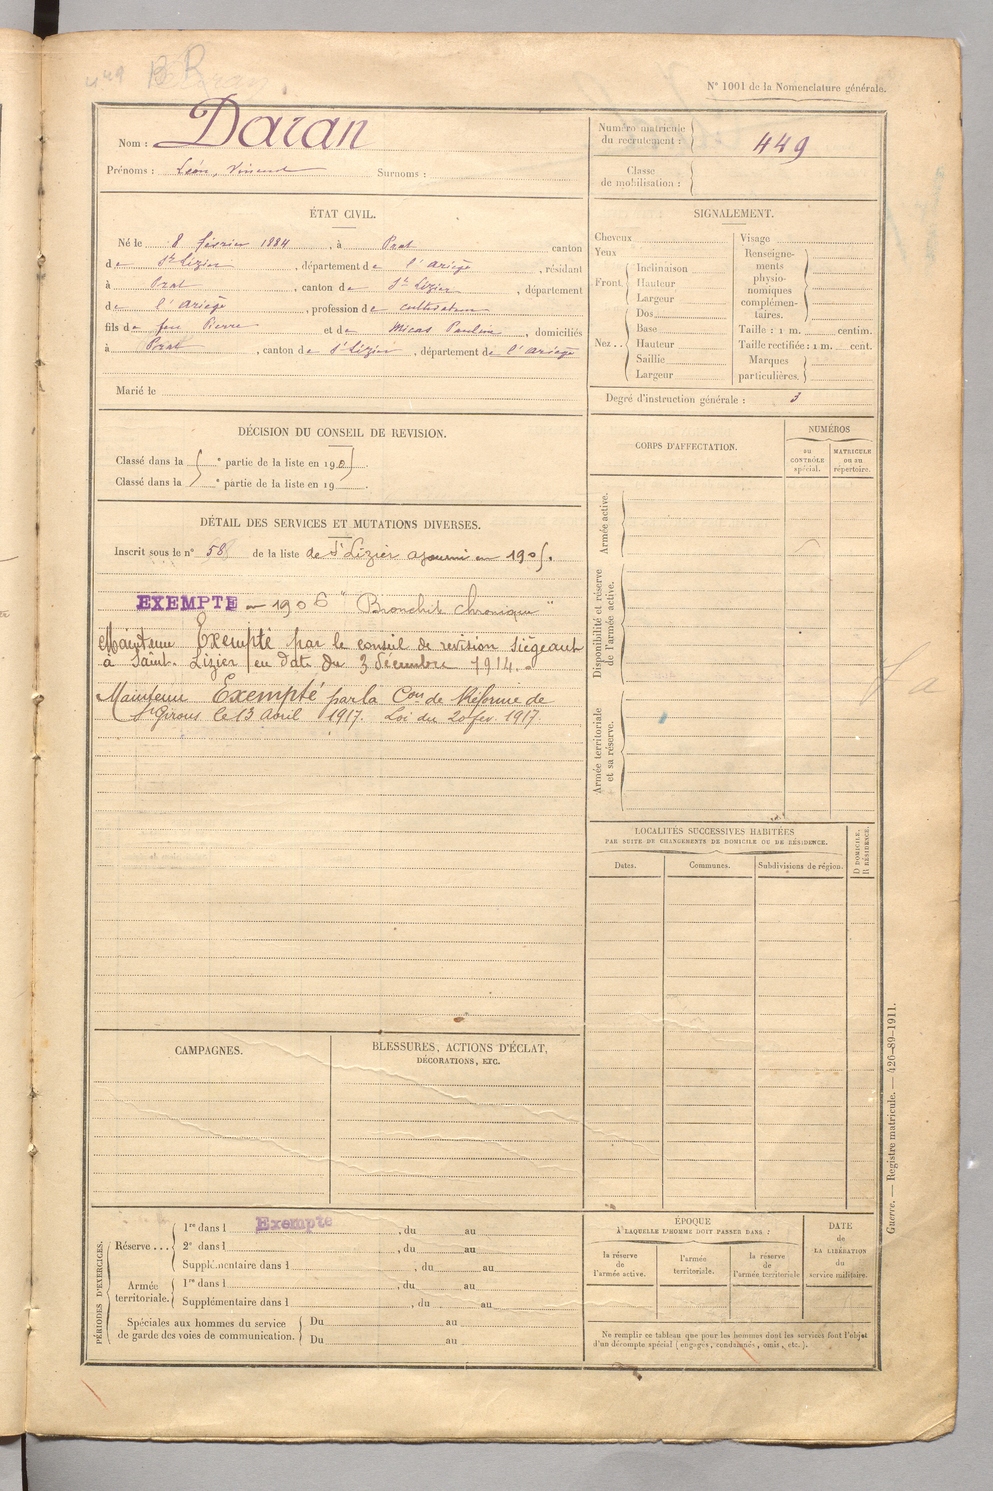 449
N° 1001 de la Nomenclature générale.
Nom : Daran
Prénoms : Léon, Vincent Surnoms :
Numéro matricule du recrutement : 449
Classe de mobilisation :
ÉTAT CIVIL.
Né le 8 février 1884, à Prat canton
de St Lizier, département de l'Ariège, résidant
à Prat, canton de St Lizier, département
de l'Ariège, profession de cultivateur
fils de feu Pierre et de Micas Pauline, domiciliés
à Prat, canton de St Lizier, département de l'Ariège
Marié le
SIGNALEMENT.
Cheveux
Yeux
Front
Inclinaison
Hauteur
Largeur
Nez..
Dos
Base
Hauteur
Saillie
Largeur
Visage
Renseigne-
ments
physio-
nomiques
complémen-
taires.
Taille : 1 m. centim.
Taille rectifiée : 1 m. cent.
Marques
particulières.
Degré d'instruction générale : 3
DÉCISION DU CONSEIL DE REVISION.
Classé dans la e partie de la liste en 190
Classé dans la e partie de la liste en 19
DÉTAIL DES SERVICES ET MUTATIONS DIVERSES.
Inscrit sous le n° 58 de la liste de St Lizier ajourné en 1905.
EXEMPTÉ en 1906 "Bronchite chronique"
Maintenu Exempté par le conseil de revision siégeant
à Saint-Lizier en date du 3 décembre 1914.
Maintenu Exempté par la Con de Réforme de
St Girons le 13 avril 1917. Loi du 20 fév. 1917.
CORPS D'AFFECTATION.
NUMÉROS
au
CONTRÔLE
spécial.
MATRICULE
ou au
répertoire.
Armée active.
Disponibilité et réserve
de l'armée active.
Armée territoriale
et sa réserve.
LOCALITÉS SUCCESSIVES HABITÉES
PAR SUITE DE CHANGEMENTS DE DOMICILE OU DE RÉSIDENCE.
Dates.
Communes.
Subdivisions de région.
D DOMICILE,
R RÉSIDENCE.
CAMPAGNES.
BLESSURES, ACTIONS D'ÉCLAT,
DÉCORATIONS, ETC.
PÉRIODES D'EXERCICES.
Réserve...
1re dans l Exempté, du au
2e dans l, du au
Supplémentaire dans l, du au
Armée
territoriale.
1re dans l, du au
Supplémentaire dans l, du au
Spéciales aux hommes du service
de garde des voies de communication.
Du au
Du au
ÉPOQUE
À LAQUELLE L'HOMME DOIT PASSER DANS :
la réserve
de
l'armée active.
l'armée
territoriale.
la réserve
de
l'armée territoriale
DATE
de
LA LIBÉRATION
du
service militaire.
Ne remplir ce tableau que pour les hommes dont les services font l'objet
d'un décompte spécial (engagés, condamnés, omis, etc.).
Guerre. — Registre matricule. — 426-89-1911.